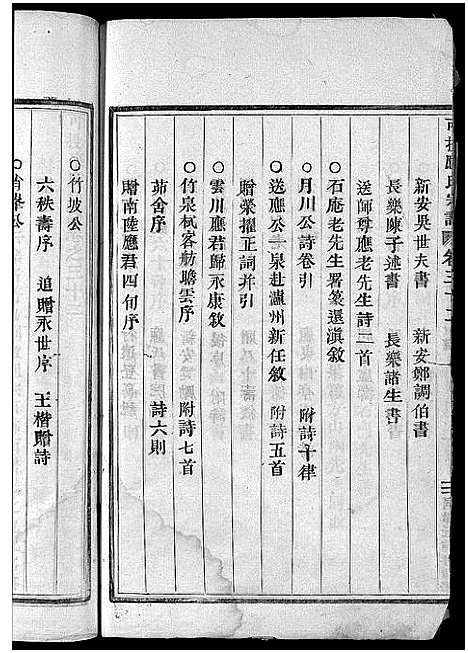 新安吳世夫書　新安鄭調伯書
長樂陳子述書　長樂諸生書
送師尊應老先生詩二首
○石庵老先生署篆還滇敘
○月川公詩卷引　附詩十律
○送應公一泉赴瀘州新任敘　附詩五首
贈榮擢正詞并引
○雲川應君歸永康敘
○竹泉栻客舫瞻雲序　附詩七首
茆舍序　詩六則
贈南陸應君四旬序
○竹坡公
六秩壽序　追贈永世序　王楷贈詩
峯公